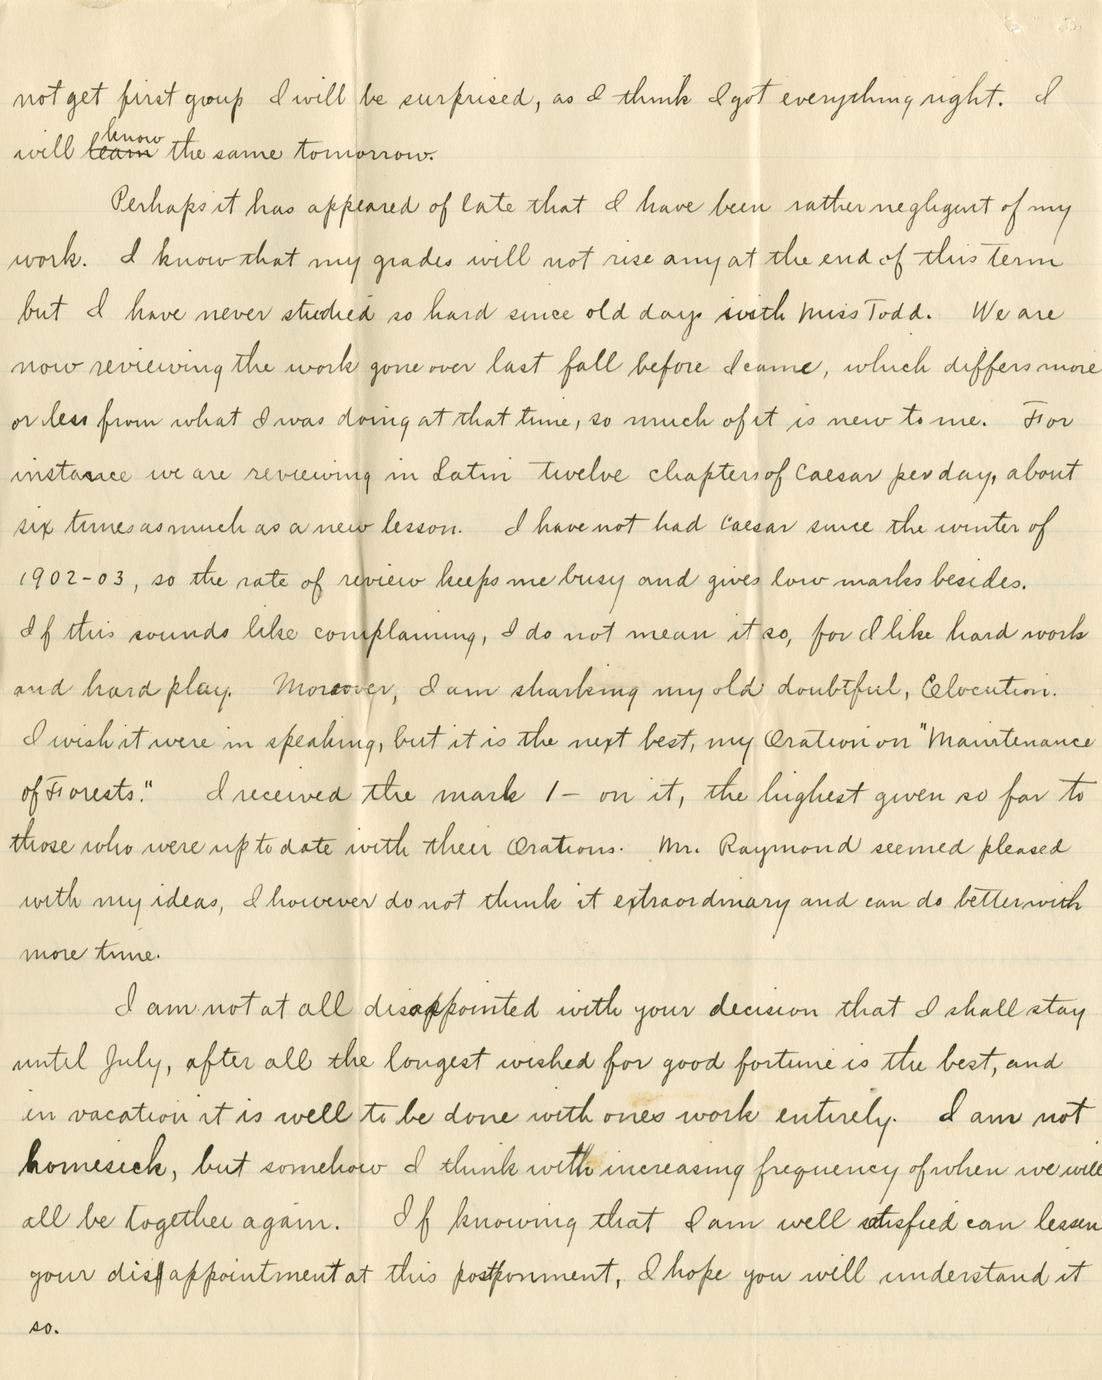 not get first group I will be surprised, as I think I got everything right. I
know
will learn the same tomorrow.
Perhaps it has appeared of late that I have been rather negligent of my
work. I know that my grades will not rise any at the end of this term
but I have never studied so hard since old days with Miss Todd. We are
now reviewing the work gone over last fall before I came, which differs more
or less from what I was doing at that time, so much of it is new to me. For
instance we are reviewing in Latin twelve chapters of Caesar per day, about
six times as much as a new lesson. I have not had Caesar since the winter of
1902-03, so the rate of review keeps me busy and gives low marks besides.
If this sounds like complaining, I do not mean it so, for I like hard work
and hard play. Moreover, I am sharking my old doubtful, Elocution.
I wish it were in speaking, but it is the next best, my Oration on "Maintenance
of Forests." I received the mark 1- on it, the highest given so far to
those who were up to date with their Orations. Mr. Raymond seemed pleased
with my ideas, I however do not think it extraordinary and can do better with
more time.
I am not at all disappointed with your decision that I shall stay
until July, after all the longest wished for good fortune is the best, and
in vacation it is well to be done with ones work entirely. I am not
homesick, but somehow I think with increasing frequency of when we will
all be together again. If knowing that I am well satisfied can lessen
your disappointment at this postponment, I hope you will understand it
so.